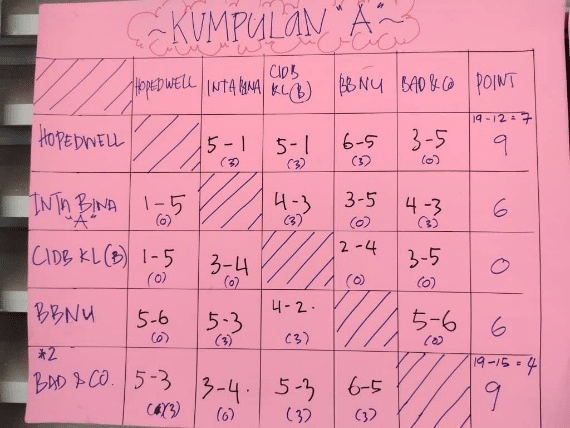 ~KUMPULAN "A"~
HOPEDWELL INTA BINA CIDB KL(B) BBNU BAD & CO POINT
HOPEDWELL 5-1 (3) 5-1 (3) 6-5 (3) 3-5 (0) 19-12=7 9
INTA BINA "A" 1-5 (0) 4-3 (3) 3-5 (0) 4-3 (3) 6
CIDB KL(B) 1-5 (0) 3-4 (0) 2-4 (0) 3-5 (0) 0
BBNU 5-6 (0) 5-3 (3) 4-2. (3) 5-6 (0) 6
*2 BAD & CO. 5-3 (3) 3-4. (0) 5-3 (3) 6-5 (3) 19-15=4 9